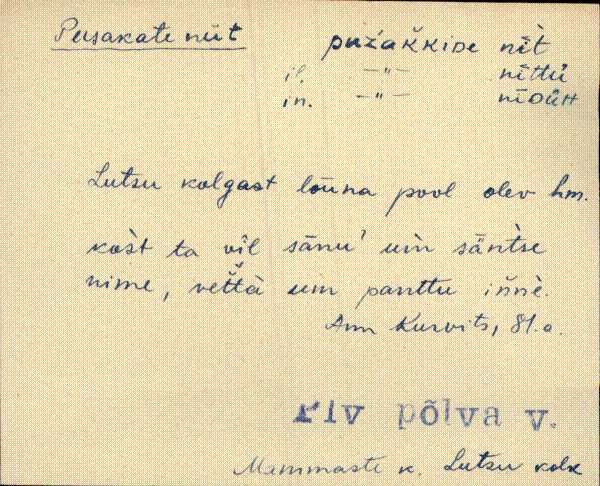 Pusakate niit puźaḱḱiDe nìt̀
il. —"— nittü
in. —"— niDüH
Lutsu kolgast lõuna pool olev hm.
kòst ta vìl sānu' uìn sānt̀se
nime, vet̆t̆à um panttu iňnè.
Ann Kurvits, 81.a.
Plv põlva v.
Mammaste k. Lutsu kolk